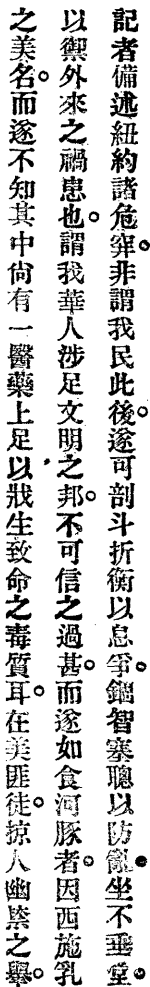 記者備述紐約諸危穽。非謂我民此後。遂可剖斗折衡以息爭。錮智塞聰以防亂。坐不垂堂。
以禦外來之禍患也。謂我華人涉足文明之邦。不可信之過甚。而遂如食河豚者。因西施乳
之美名。而遂不知其中尙有一醫藥上足以戕生致命之毒質耳。在美匪徒掠人幽禁之舉。